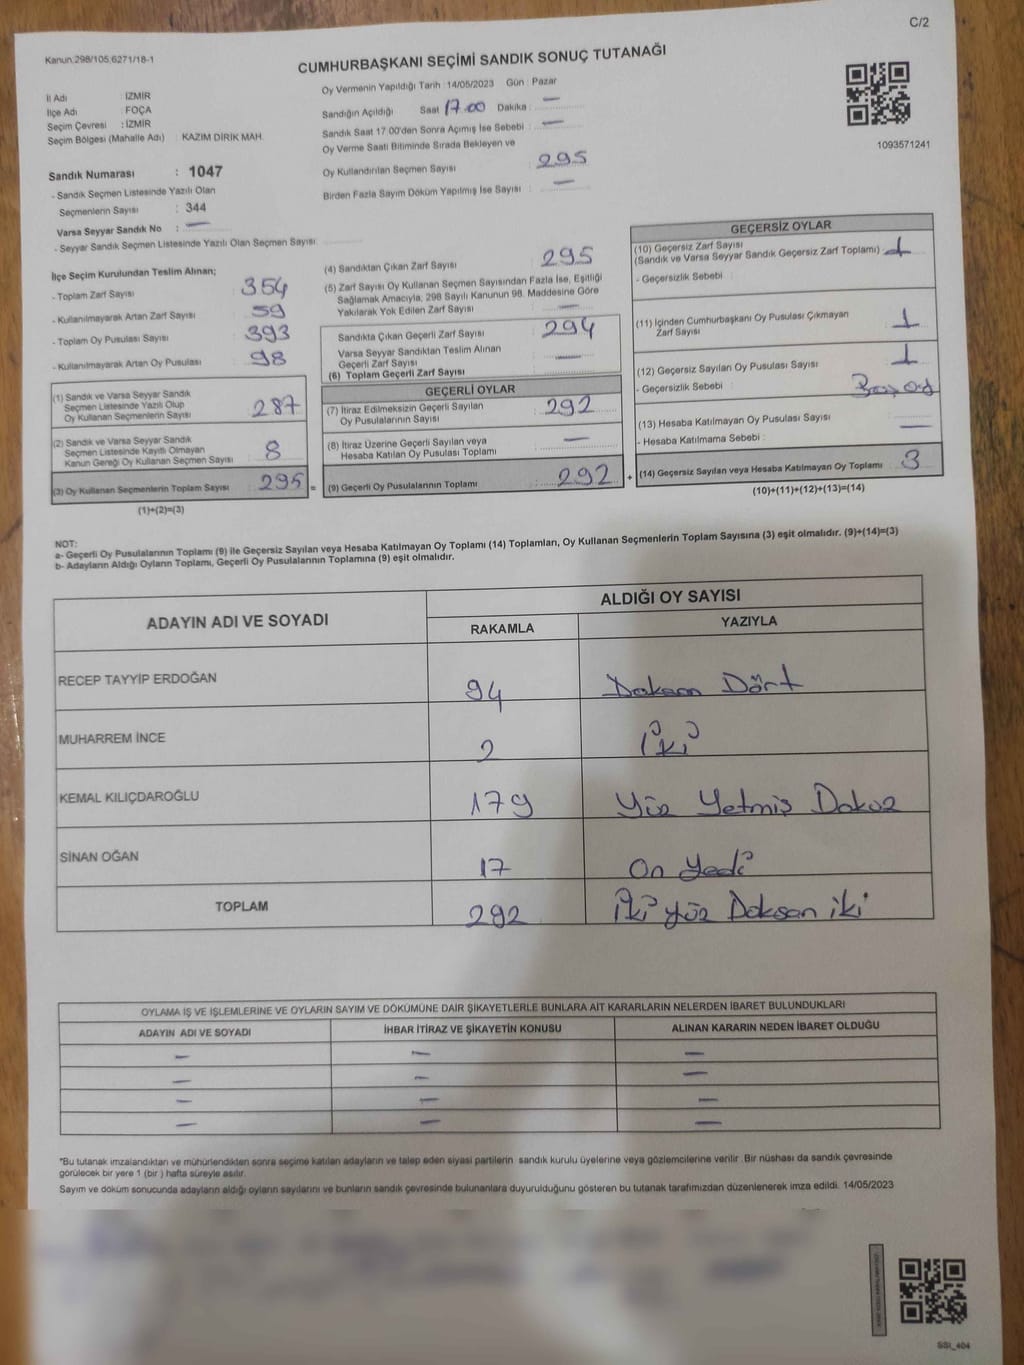 C/2
Kanun.298/105,6271/18-1
CUMHURBAŞKANI SEÇİMİ SANDIK SONUÇ TUTANAĞI
İl Adı : İZMİR
İlçe Adı : FOÇA
Seçim Çevresi : İZMİR
Seçim Bölgesi (Mahalle Adı) : KAZIM DİRİK MAH.
Oy Vermenin Yapıldığı Tarih : 14/05/2023 Gün : Pazar
Sandığın Açıldığı Saat 17.00 Dakika : —
Sandık Saat 17.00'dan Sonra Açımış İse Sebebi : —
Oy Verme Saati Bitiminde Sırada Bekleyen ve
Oy Kullandırılan Seçmen Sayısı : 295
Birden Fazla Sayım Döküm Yapılmış İse Sayısı : —
1093571241
Sandık Numarası : 1047
- Sandık Seçmen Listesinde Yazılı Olan
Seçmenlerin Sayısı : 344
Varsa Seyyar Sandık No : —
- Seyyar Sandık Seçmen Listesinde Yazılı Olan Seçmen Sayısı:
İlçe Seçim Kurulundan Teslim Alınan;
- Toplam Zarf Sayısı : 354
- Kullanılmayarak Artan Zarf Sayısı : 59
- Toplam Oy Pusulası Sayısı : 393
- Kullanılmayarak Artan Oy Pusulası : 98
(1) Sandık ve Varsa Seyyar Sandık
Seçmen Listesinde Yazılı Olup
Oy Kullanan Seçmenlerin Sayısı : 287
(2) Sandık ve Varsa Seyyar Sandık
Seçmen Listesinde Kayıtlı Olmayan
Kanun Gereği Oy Kullanan Seçmen Sayısı : 8
(3) Oy Kullanan Seçmenlerin Toplam Sayısı : 295 =
(1)+(2)=(3)
(4) Sandıktan Çıkan Zarf Sayısı : 295
(5) Zarf Sayısı Oy Kullanan Seçmen Sayısından Fazla İse, Eşitliği
Sağlamak Amacıyla, 298 Sayılı Kanunun 98. Maddesine Göre
Yakılarak Yok Edilen Zarf Sayısı : —
Sandıkta Çıkan Geçerli Zarf Sayısı : 294
Varsa Seyyar Sandıktan Teslim Alınan
Geçerli Zarf Sayısı : —
(6) Toplam Geçerli Zarf Sayısı :
GEÇERLİ OYLAR
(7) İtiraz Edilmeksizin Geçerli Sayılan
Oy Pusulalarının Sayısı : 292
(8) İtiraz Üzerine Geçerli Sayılan veya
Hesaba Katılan Oy Pusulası Toplamı : —
(9) Geçerli Oy Pusulalarının Toplamı : 292 +
GEÇERSİZ OYLAR
(10) Geçersiz Zarf Sayısı
(Sandık ve Varsa Seyyar Sandık Geçersiz Zarf Toplamı) : 1
- Geçersizlik Sebebi :
(11) İçinden Cumhurbaşkanı Oy Pusulası Çıkmayan
Zarf Sayısı : 1
(12) Geçersiz Sayılan Oy Pusulası Sayısı : 1
- Geçersizlik Sebebi : Boş oy
(13) Hesaba Katılmayan Oy Pusulası Sayısı : —
- Hesaba Katılmama Sebebi :
(14) Geçersiz Sayılan veya Hesaba Katılmayan Oy Toplamı : 3
(10)+(11)+(12)+(13)=(14)
NOT:
a- Geçerli Oy Pusulalarının Toplamı (9) ile Geçersiz Sayılan veya Hesaba Katılmayan Oy Toplamı (14) Toplamları, Oy Kullanan Seçmenlerin Toplam Sayısına (3) eşit olmalıdır. (9)+(14)=(3)
b- Adayların Aldığı Oyların Toplamı, Geçerli Oy Pusulalarının Toplamına (9) eşit olmalıdır.
ADAYIN ADI VE SOYADI ALDIĞI OY SAYISI
RAKAMLA YAZIYLA
RECEP TAYYİP ERDOĞAN 94 Doksan Dört
MUHARREM İNCE 2 İki
KEMAL KILIÇDAROĞLU 179 Yüz Yetmiş Dokuz
SİNAN OĞAN 17 On Yedi
TOPLAM 292 İki yüz Doksan iki
OYLAMA İŞ VE İŞLEMLERİNE VE OYLARIN SAYIM VE DÖKÜMÜNE DAİR ŞİKAYETLERLE BUNLARA AİT KARARLARIN NELERDEN İBARET BULUNDUKLARI
ADAYIN ADI VE SOYADI İHBAR İTİRAZ VE ŞİKAYETİN KONUSU ALINAN KARARIN NEDEN İBARET OLDUĞU
— — —
— — —
— — —
— — —
*Bu tutanak imzalandıktan ve mühürlendikten sonra seçime katılan adayların ve talep eden siyasi partilerin sandık kurulu üyelerine veya gözlemcilerine verilir. Bir nüshası da sandık çevresinde
görülecek bir yere 1 (bir) hafta süreyle asılır.
Sayım ve döküm sonucunda adayların aldığı oyların sayılarını ve bunların sandık çevresinde bulunanlara duyurulduğunu gösteren bu tutanak tarafımızdan düzenlenerek imza edildi. 14/05/2023
SSI_404